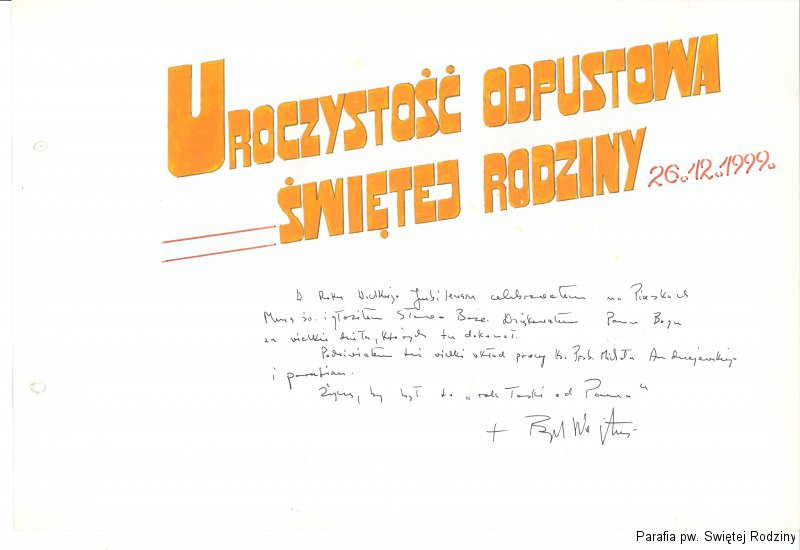 UROCZYSTOŚĆ ODPUSTOWA
ŚWIĘTEJ RODZINY 26.12.1999.
W Roku Wielkiego Jubileuszu celebrowałem na Piaskach
Mszę św. i głosiłem Słowo Boże. Dziękowałem Panu Bogu
za wielkie dzieła, których tu dokonał.
Podziwiałem też wielki wkład pracy ks. Prob. Andrzejewskiego
i parafian.
Życzę, by był to „rok łaski od Pana"
+
Parafia pw. Swiętej Rodziny